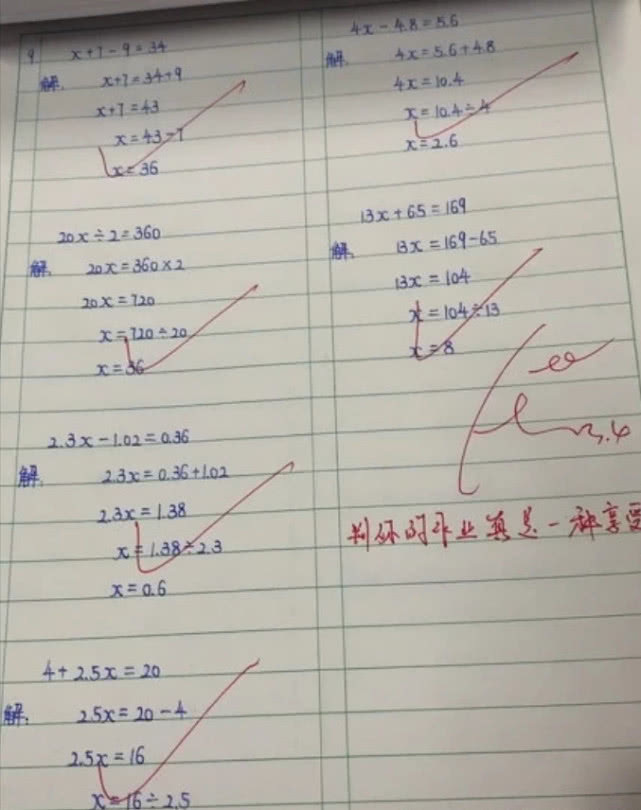 9 x+7-9=34
解: x+7=34+9
x+7=43
x=43-7
x=36
20x÷2=360
解: 20x=360×2
20x=720
x=720÷20
x=36
2.3x-1.02=0.36
解: 2.3x=0.36+1.02
2.3x=1.38
x=1.38÷2.3
x=0.6
4+2.5x=20
解: 2.5x=20-4
2.5x=16
x=16÷2.5
4x-4.8=5.6
解: 4x=5.6+4.8
4x=10.4
x=10.4÷4
x=2.6
13x+65=169
解: 13x=169-65
13x=104
x=104÷13
x=8
判你的作业真是一种享受